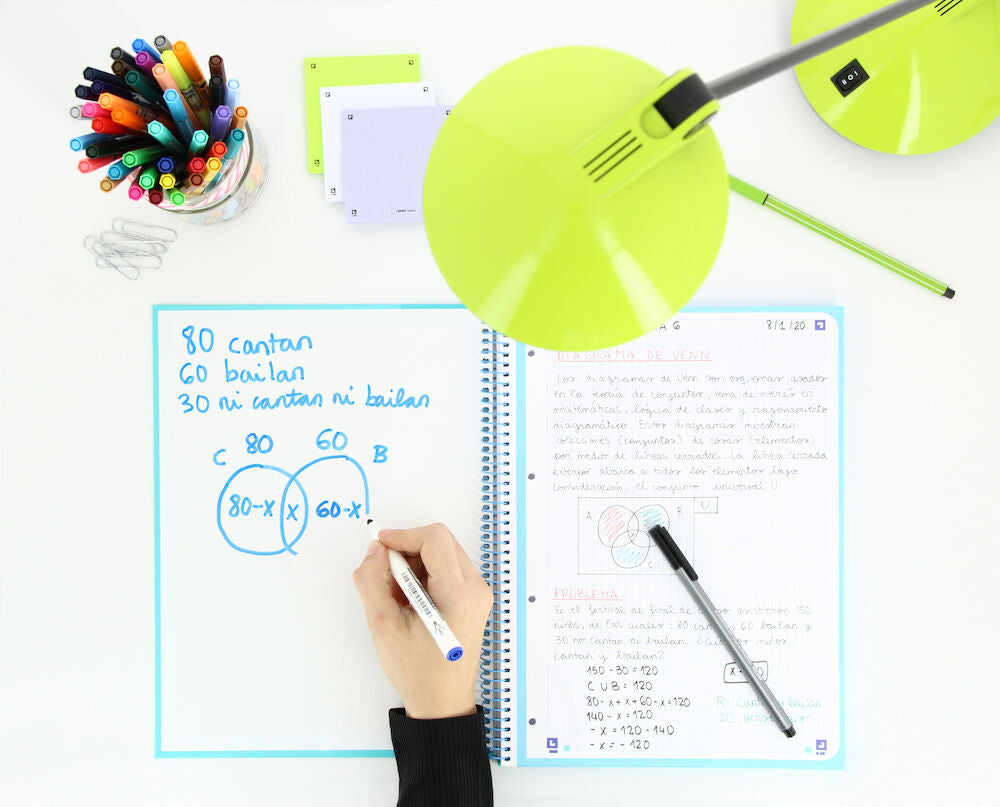 80 cantan
60 bailan
30 ni cantan ni bailan
80 60
C B
80-x x 60-x
A 6 8/1/20
DIAGRAMA DE VENN
Los diagramas de Venn son esquemas usados
en la teoría de conjuntos, tema de interés en
matemáticas, lógica de clases y razonamiento
diagramático. Estos diagramas muestran
colecciones (conjuntos) de cosas (elementos)
por medio de líneas cerradas. La línea cerrada
exterior abarca a todos los elementos bajo
consideración, el conjunto universal U.
U
A B
x
C
PROBLEMA
En el festival de final de asistieron 150
niños, de los cuales: 80 60 bailan y
30 no cantan ni bailan. ¿ niños
cantan y bailan?
150 - 30 = 120
C U B = 120
80 - x + x + 60 - x = 120
140 - x = 120
- x = 120 - 140
- x = - 120
R= Cantan y bailan
20